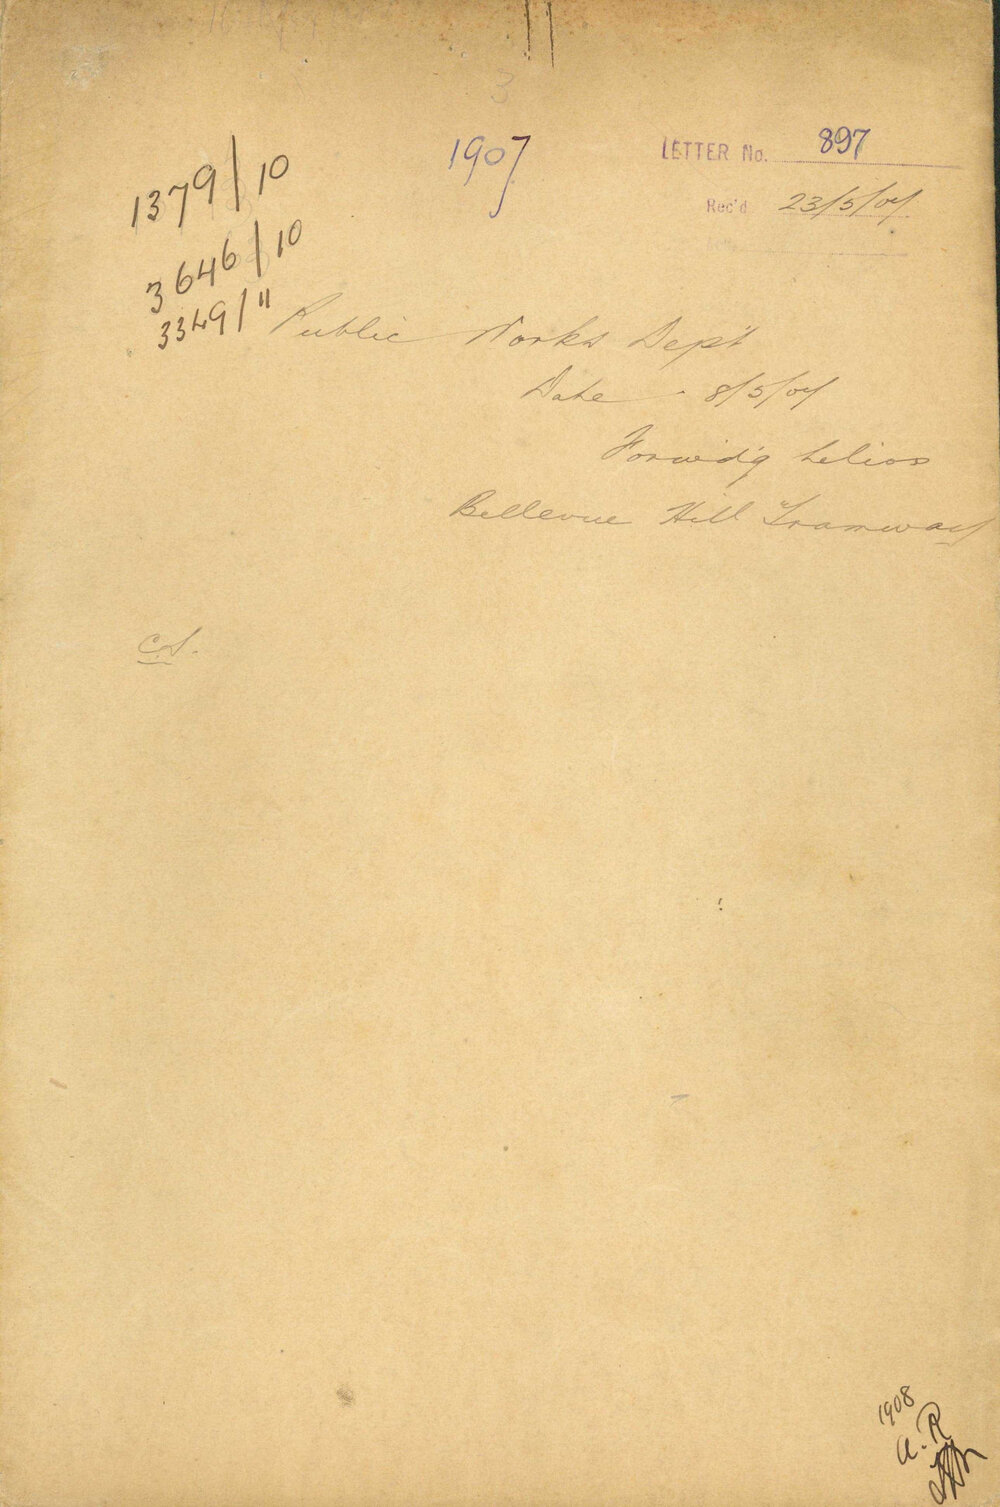 3
1907
LETTER No. 897
Rec'd 23/5/07
1379/10
3646/10
3349/11
Public Works Dep't
Date - 8/5/07
Forwd'g helios
Bellevue Hill Tramway
C.S.
1908
A.R